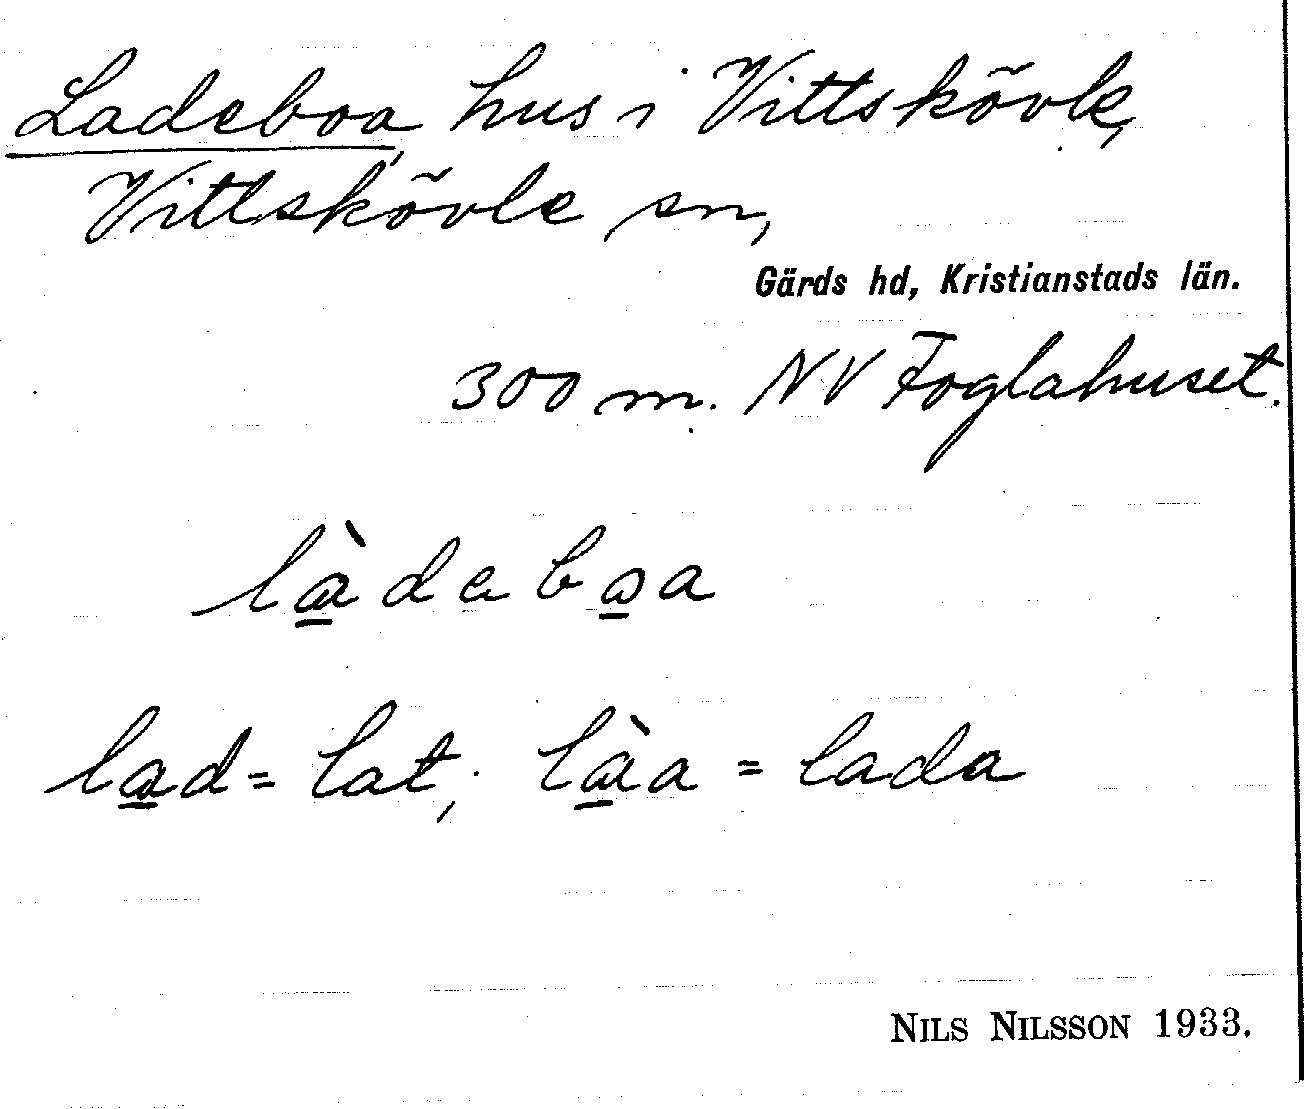 Ladeboa, hus i Vittskövle,
Vittskövle sn,
Gärds hd, Kristianstads län.
300 m. NV Foglahuset.
lɑ̱̀debɷ̱a
lɑ̱d = lat; lɑ̱̀a = lada
NILS NILSSON 1933.